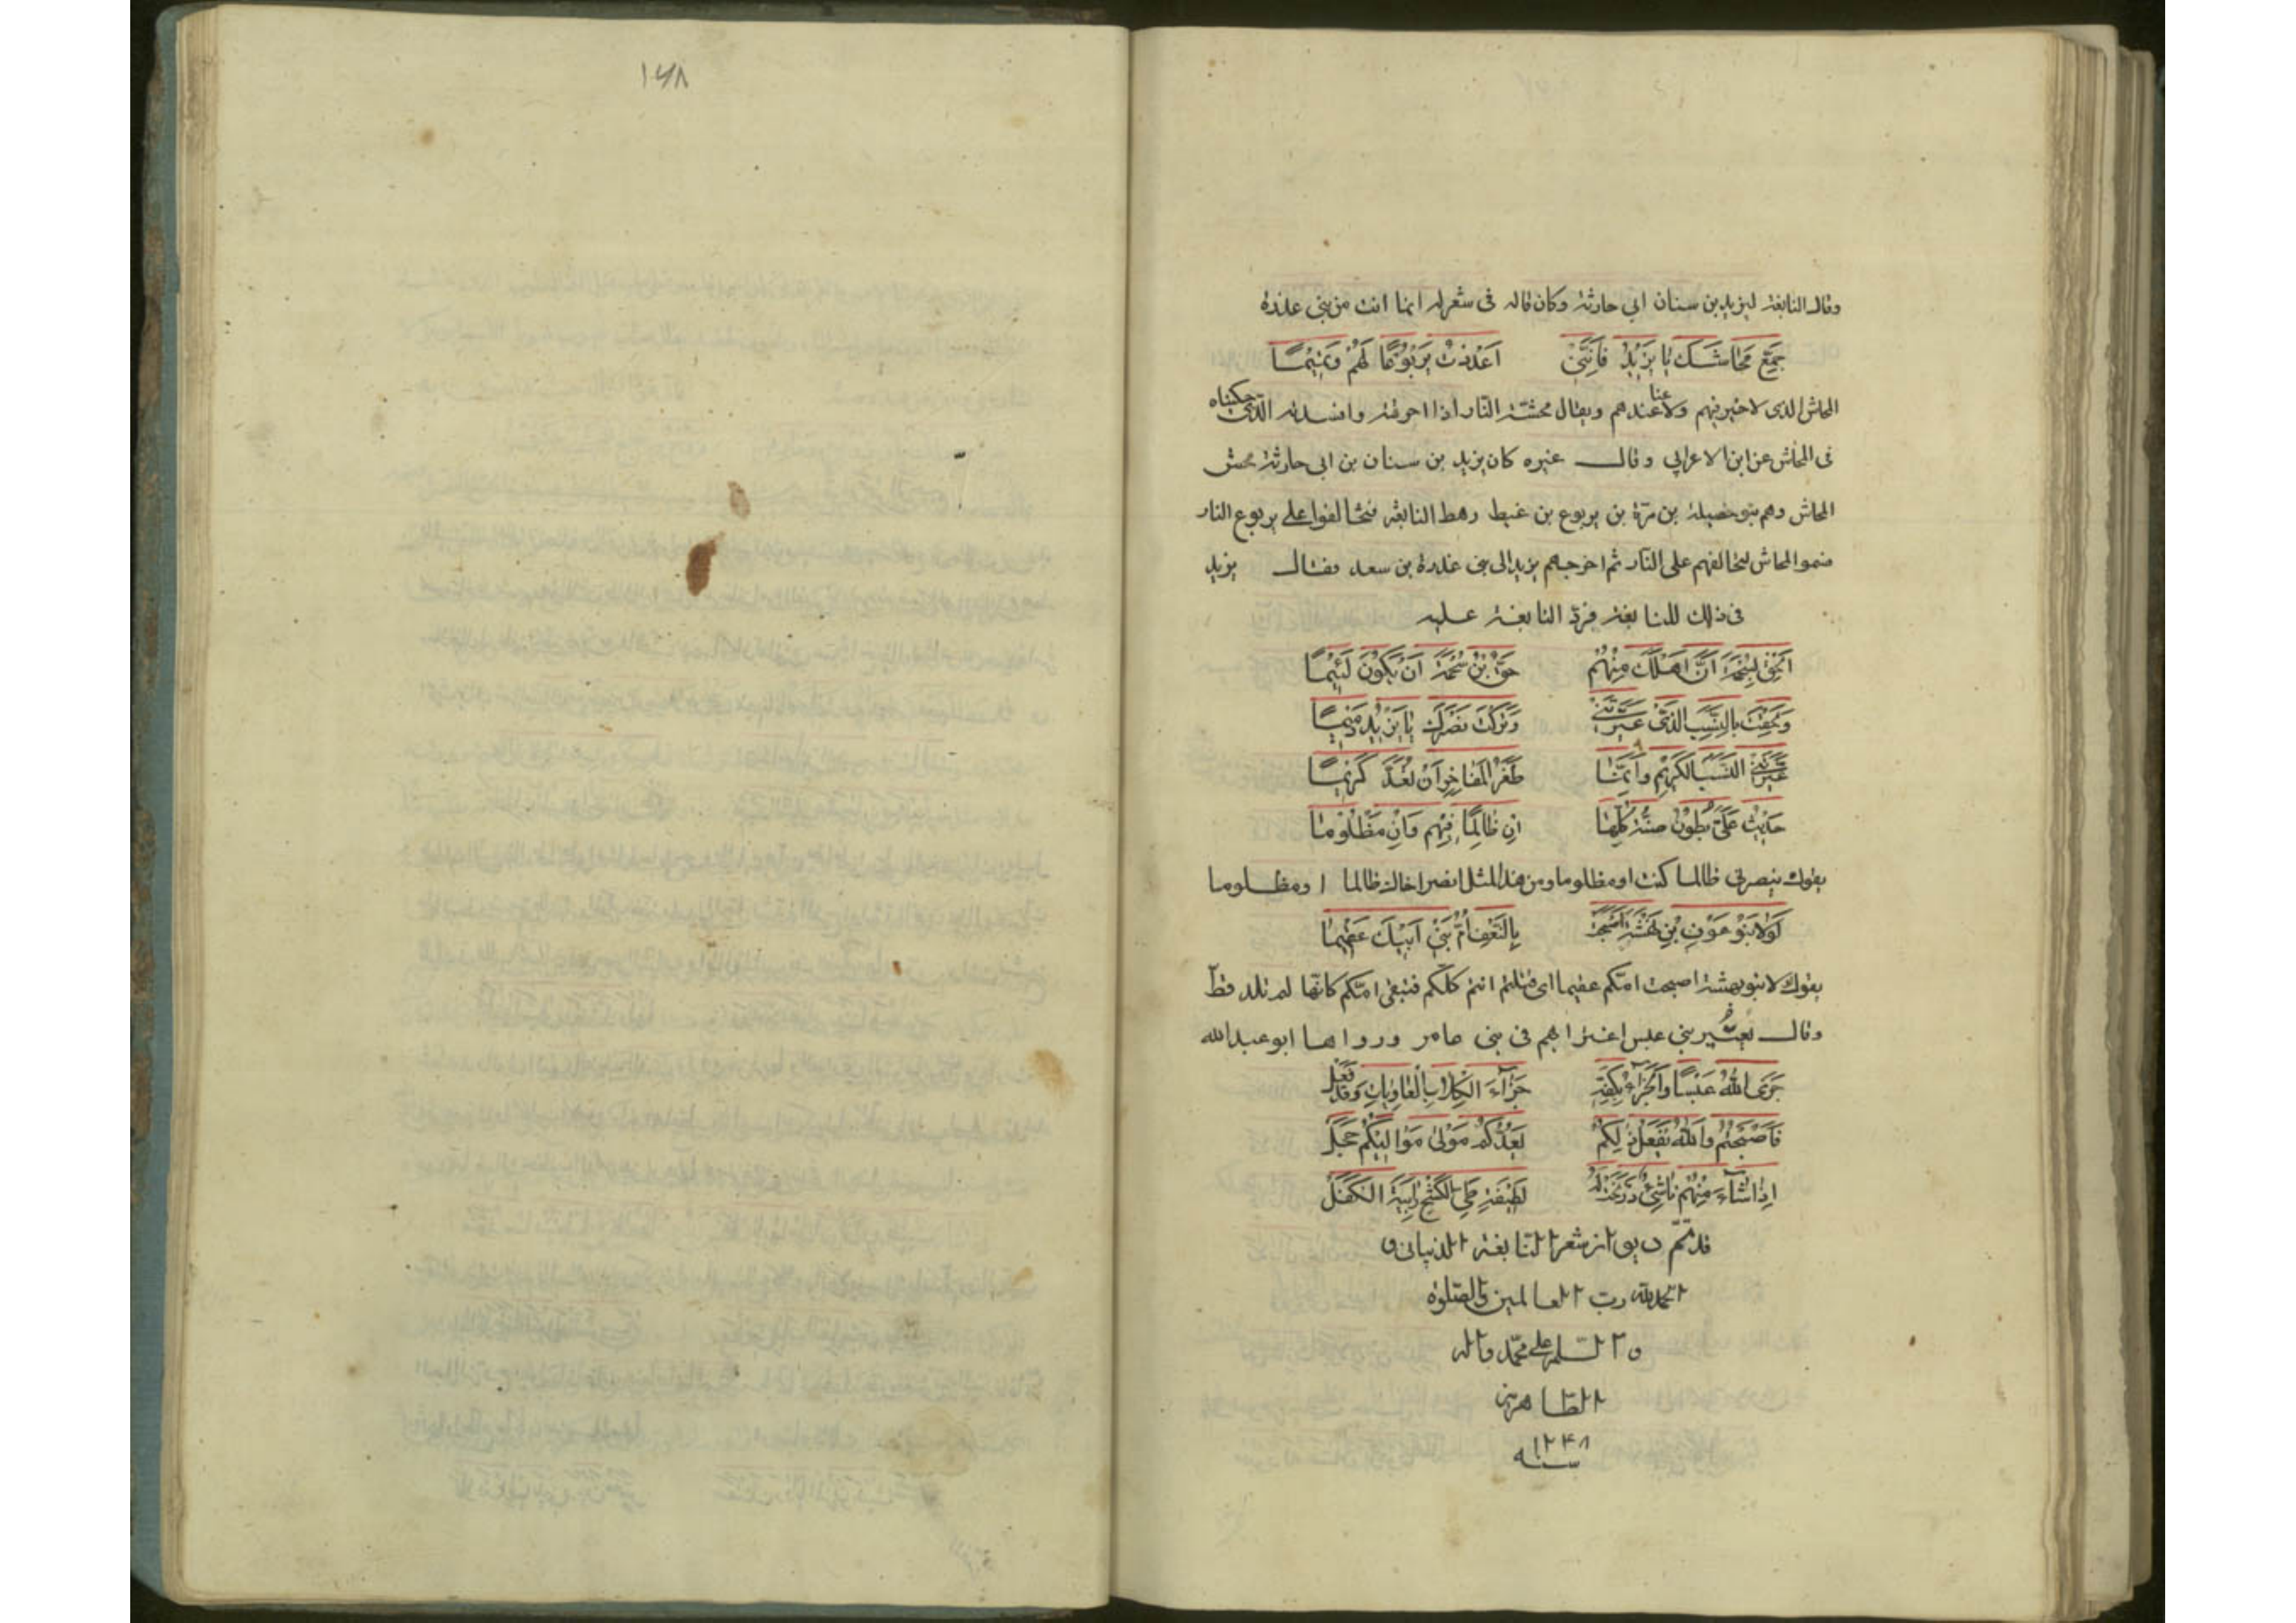 وقال النابغة ليزيد بن سنان ابي حارثة وكان قاله في شعر له انما انت من بني عذرة
جَمِّع مَحَاشَكَ يا يَزيدُ فَاِنَّني اَعدَدتُ يَربُوعًا لَهُم وَتَميمًا
المحاش الذى لا خير فيهم ولا غنا عندهم ويقال محشته النار اذا احرقته وافسدته الذى حكيناه
فى المحاش عن ابن الاعرابي وقال غيره كان يزيد بن سنان بن ابي حارثة محش
المحاش وهم بنو خصيلة بن مرة بن يربوع بن غيط رهط النابغة فتحالفوا على يربوع النار
فسموا المحاش لتحالفهم على النار ثم اخرجهم يزيد الى بنى عذرة بن سعد فقال يزيد
فى ذلك للنابغة فرد النابغة عليه
حَقّ بْن سُحْمَةَ اَن يَكُونَ لَئيمًا
وَلَحِقْتَ بِالنَّسَبِ الَّذى عَيَّرْتَنى وَتَرَكْتَ نَصْرَكَ يا يَزيدُ ذَميمًا
عَيَّرْتَنى النَّسَبَ الكَريمَ وَاِنَّمَا ظَفَرُ المَفَاخِرِ اَن تُعَدَّ كَريمًا
حَدِبَتْ عَلَىَّ بُطُونُ ضِنَّةَ كُلُّهَا اِن ظَالِمًا فيهِم وَاِن مَظْلُومًا
يقول ينصرنى ظالما كنت او مظلوما ومن هذا المثل انصر اخاك ظالما او مظلوما
لَوْلا بَنُو عَوْفِ بْنِ بُهْثَةَ اَصْبَحَتْ بِالنَّعْفِ اُمُّ بَنى اَبيكَ عَقيمًا
يقول لولا بنو بهثة اصبحت امكم عقيما اى قتلتم انتم كلكم فتبقى امكم كانها لم تلد قط
وقال يعير بني عبس اغترابهم فى بنى عامر ورواها ابو عبد الله
جَزَى اللهُ عَبْسًا وَالجَزَآءُ بِكَفِّهِ جَزَآءَ الكِلابِ العَاوِيَاتِ وَقَد فَعَل
فَاَصْبَحْتُم وَاللهُ يَفْعَلُ ذلِكُم يَعُدُّكُم مَوْلى مَوَاليكُم حَجَل
اِذَا شَآءَ مِنْهُم نَاشِئٌ لَطيفَةُ طَىِّ الكَشْحِ رَابِيَةُ الكَفَل
قد تم ديوان شعر النابغة الذبيانى و
الحمد لله رب العالمين والصلوة
و السلم على محمد واله
الطاهرين
سنه ١٢٤٨
١٦٨